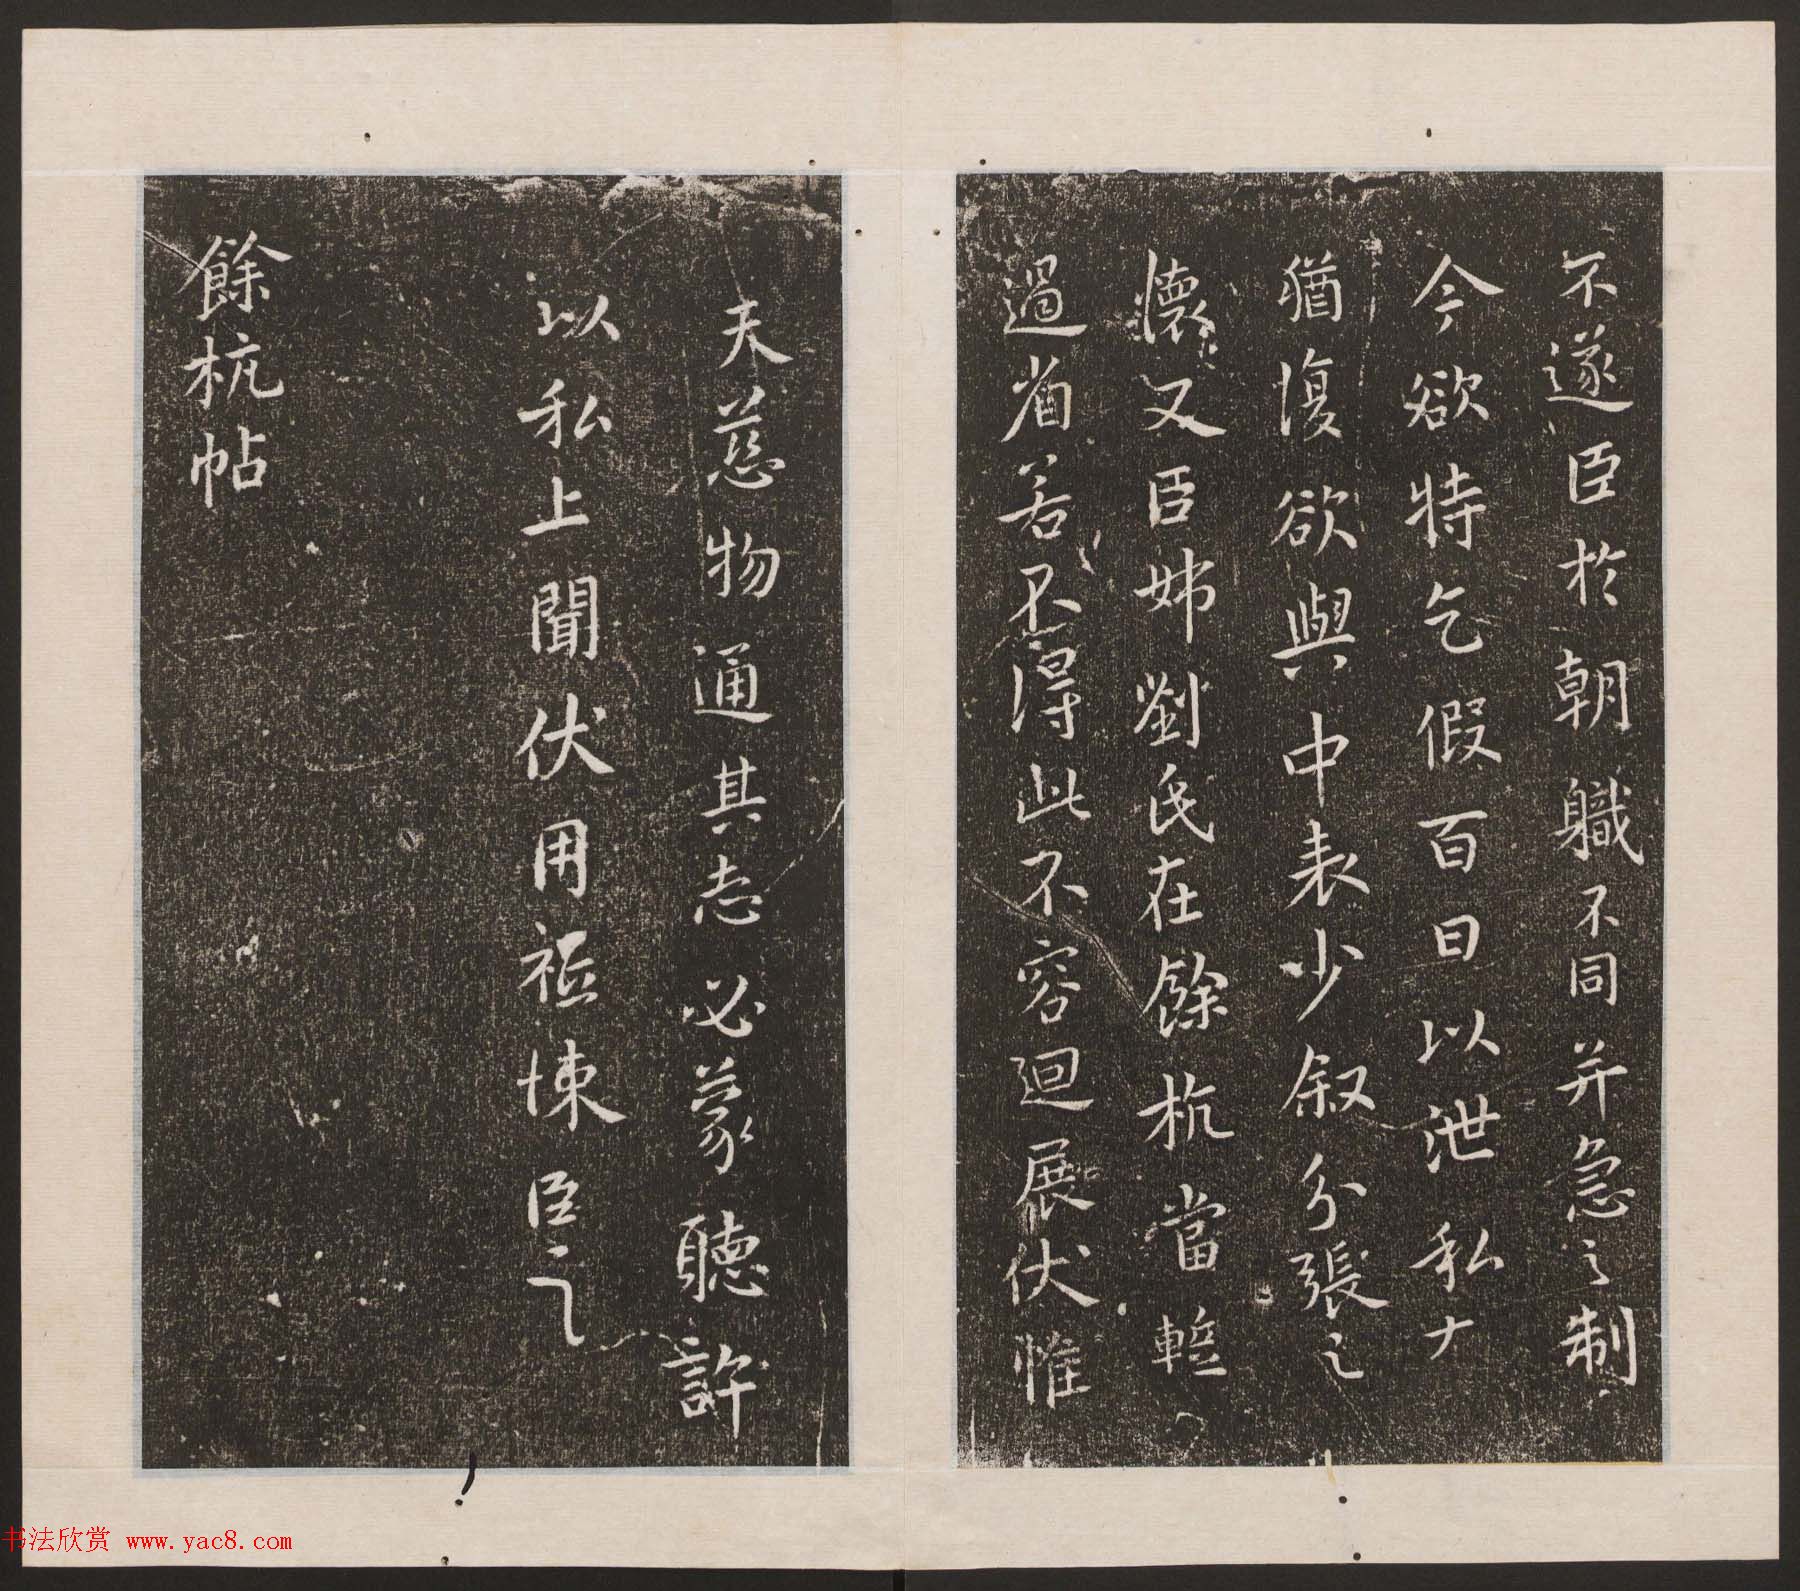 不遂臣於朝軄不同并急之制
今欲特乞假百日以泄私大
猶復欲與中表少叙分張之
懷又臣姊劉氏在餘杭當蹔
過省若不得此不容迴展伏惟
天慈物通其志必蒙聽許
以私上聞伏用祗悚臣之
餘杭帖
书法欣赏 www.yac8.com